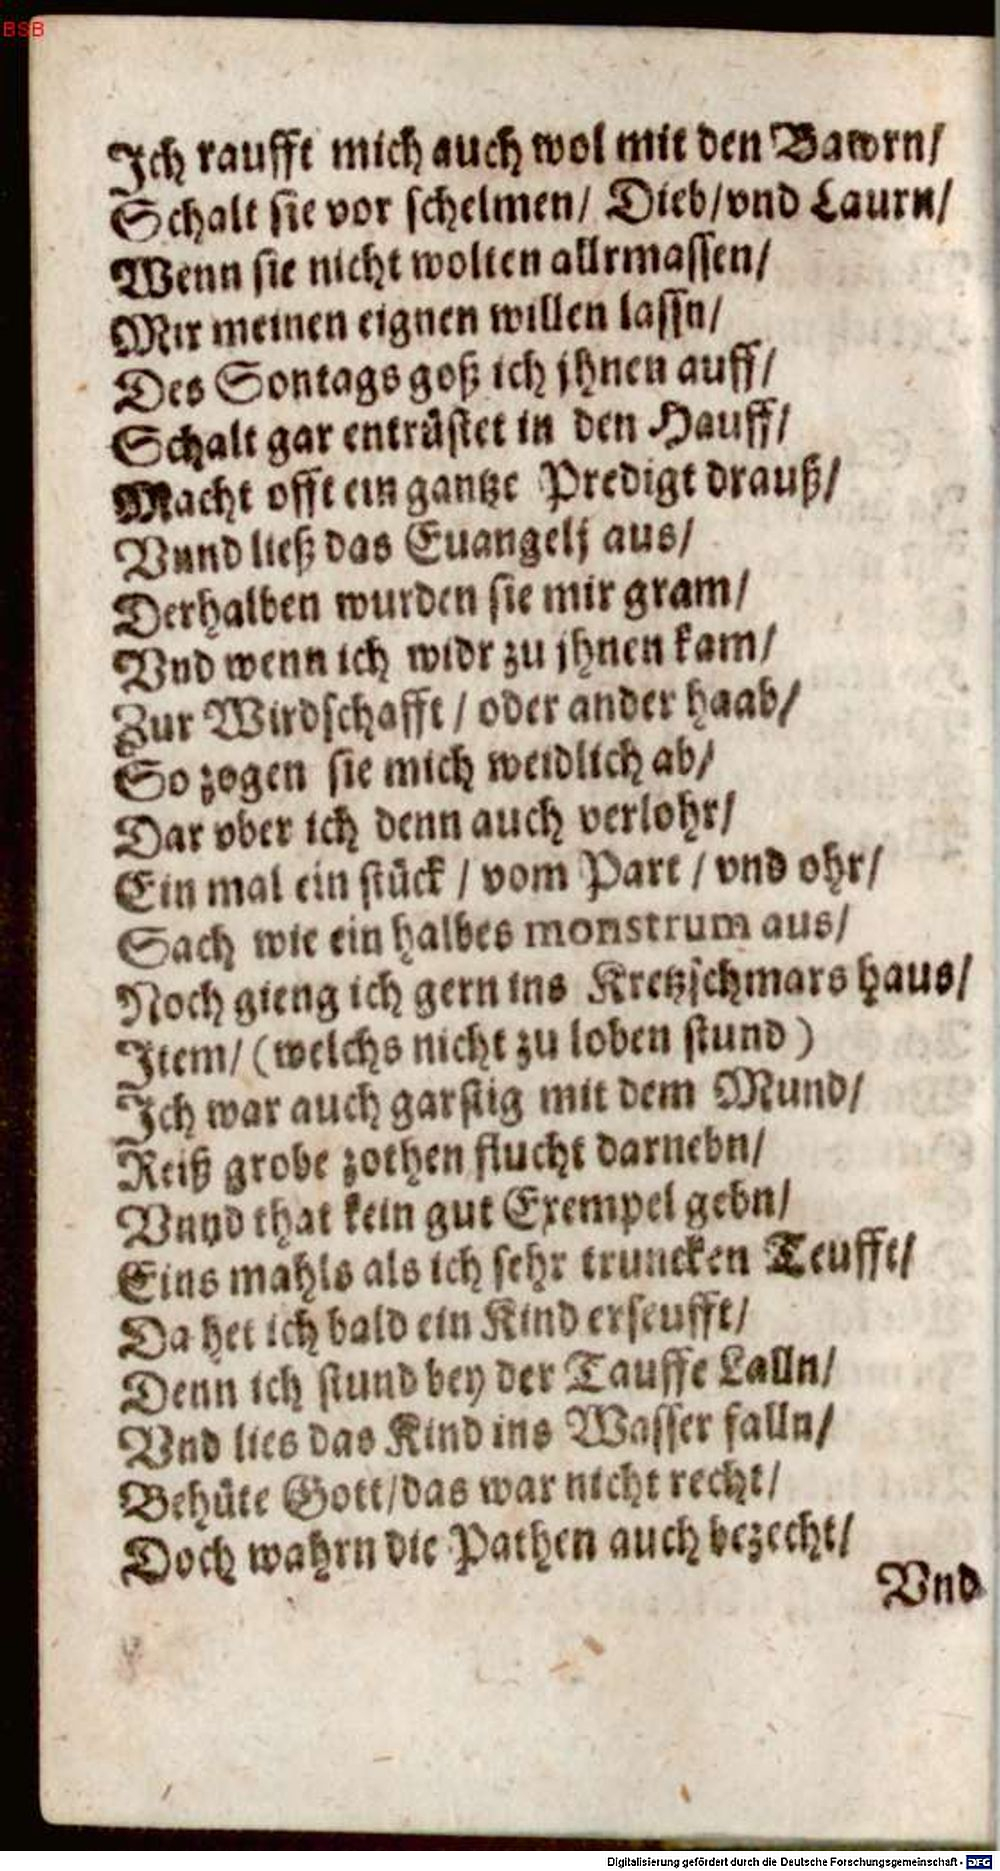 BSB
Ich raufft mich auch wol mit den Bawrn/
Schalt sie vor schelmen/ Dieb/vnd Laurn/
Wenn sie nicht wolten allrmassen/
Mir meinen eignen willen lassn/
Des Sontags goß ich jhnen auff/
Schalt gar entrüstet in den Hauff/
Macht offt ein gantze Predigt drauß/
Vnnd ließ das Euangelj aus/
Derhalben wurden sie mir gram/
Vnd wenn ich widr zu jhnen kam/
Zur Wirdschafft / oder ander haab/
So zogen sie mich weidlich ab/
Dar vber ich denn auch verlohr/
Ein mal ein stück / vom Part / vnd ohr/
Sach wie ein halbes monstrum aus/
Noch gieng ich gern ins Kretzschmars haus/
Item/ (welchs nicht zu loben stund)
Ich war auch garstig mit dem Mund/
Reiß grobe zothen flucht darnebn/
Vnnd that kein gut Exempel gebn/
Eins mahls als ich sehr truncken Teufft/
Da het ich bald ein Kind erseufft/
Denn ich stund bey der Tauffe Lalln/
Vnd lies das Kind ins Wasser falln/
Behüte Gott/das war nicht recht/
Doch wahrn die Pathen auch bezecht/
Vnd
Digitalisierung gefördert durch die Deutsche Forschungsgemeinschaft - DFG